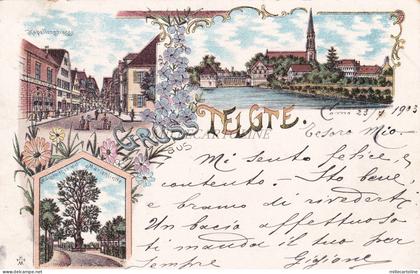 GRUSS AUS TELGTE.
23 1903
Tesoro Mio
Mi sento felice, e
contento. — Sto bene
e bramo di rivederti
Un bacio affettuoso
ti manda il tuo per
sempre